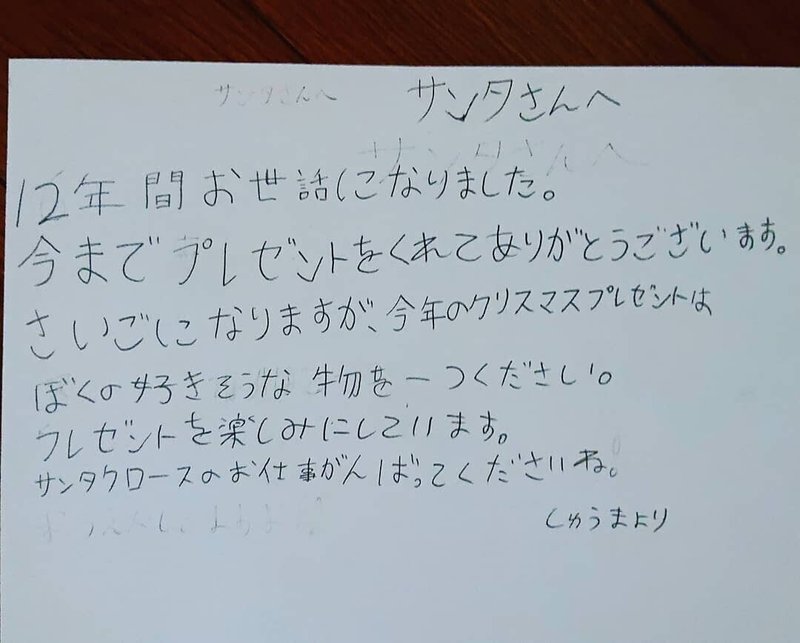 サンタさんへ
サンタさんへ
サンタさんへ
12年間お世話になりました。
今までプレゼントをくれてありがとうございます。
さいごになりますが、今年のクリスマスプレゼントは
ぼくの好きそうな物を一つください。
プレゼントを楽しみにしています。
サンタクロースのお仕事がんばってくださいね。
しゅうまより